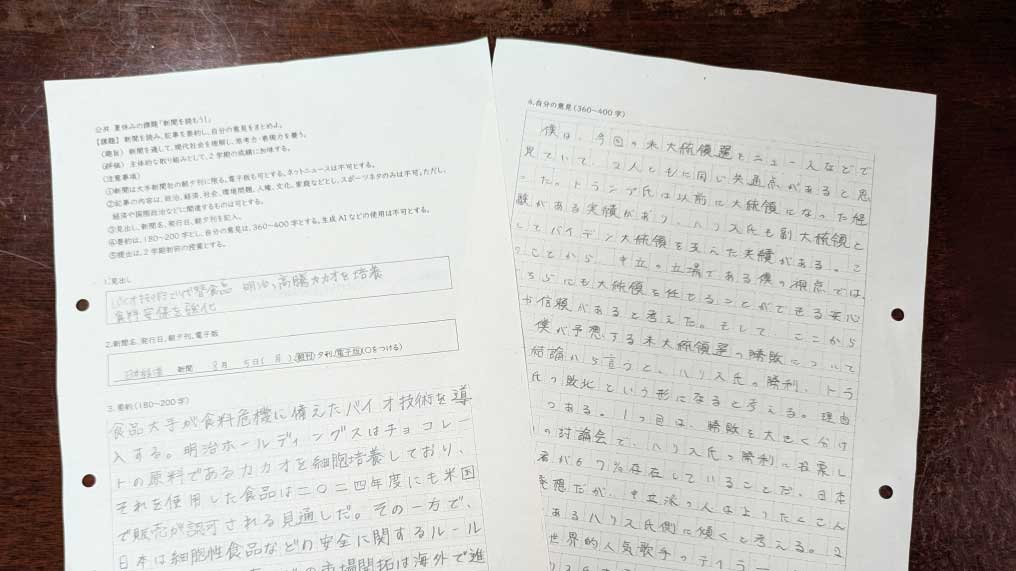 公共 夏休みの課題「新聞を読もう!」
【課題】 新聞を読み、記事を要約し、自分の意見をまとめよ。
(趣旨) 新聞を通して、現代社会を理解し、思考力・表現力を養う。
(評価) 主体的な取り組みとして、2学期の成績に加味する。
(注意事項)
①新聞は大手新聞社の朝夕刊に限る。電子版も可とする。ネットニュースは不可とする。
②記事の内容は、政治、経済、社会、環境問題、人権、文化、家庭などとし、スポーツネタのみは不可。ただし、
経済や国際政治などに関連するものは可とする。
③見出し、新聞名、発行日、朝夕刊を記入。
④要約は、180~200字とし、自分の意見は、360~400字とする。生成AIなどの使用は不可とする。
⑤提出は、2学期初回の授業とする。
1.見出し
バイオ技術で代替食品 明治、高騰カカオを培養
食料安保を強化
2.新聞名、発行日、朝夕刊、電子版
日本経済 新聞 8月 5日( 月 )朝刊・夕刊/電子版(○をつける)
3.要約(180~200字)
食品大手が食料危機に備えたバイオ技術を導
入する。明治ホールディングスはチョコレー
トの原料であるカカオを細胞培養しており、
それを使用した食品は二〇二四年度にも米国
で販売が認可される見通しだ。その一方で、
日本は細胞性食品などの安全に関するルール
の市場開拓は海外で進
4.自分の意見(360~400字)
僕は、今回の米大統領選をニュースなどで
見ていて、2人ともに同じ共通点があると思
った。トランプ氏は以前に大統領になった経
験がある実績があり、ハリス氏も副大統領と
してバイデン大統領を支えた実績がある。こ
のことから、中立の立場である僕の視点では、
どちらにも大統領を任せることができる安心
や信頼があると考えた。そして、ここから
僕が予想する米大統領選の勝敗について
結論から言うと、ハリス氏の勝利、トラ
氏の敗北という形になると考える。理由
つある。1つ目は、勝敗を大きく分け
の討論会で、ハリス氏の勝利に投票し
者が67%存在していることだ。日本
予想だが、中立派の人はよりたくさん
あるハリス氏側に傾くと考える。2
世界的人気歌手のテイラー